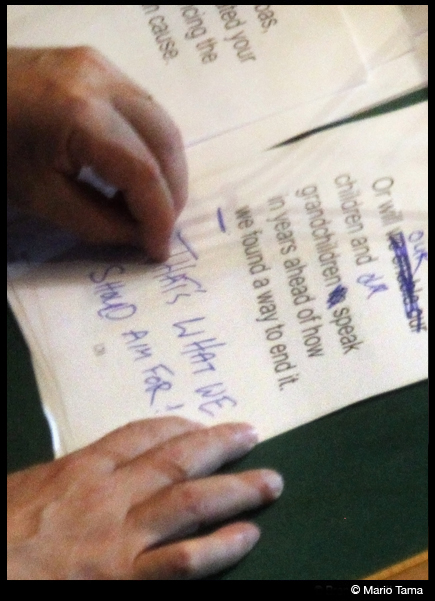 your
the
cause.
Or will our
children and our
grandchildren speak
in years ahead of how
we found a way to end it.
– THAT'S WHAT WE
SHOULD AIM FOR!
© Mario Tama